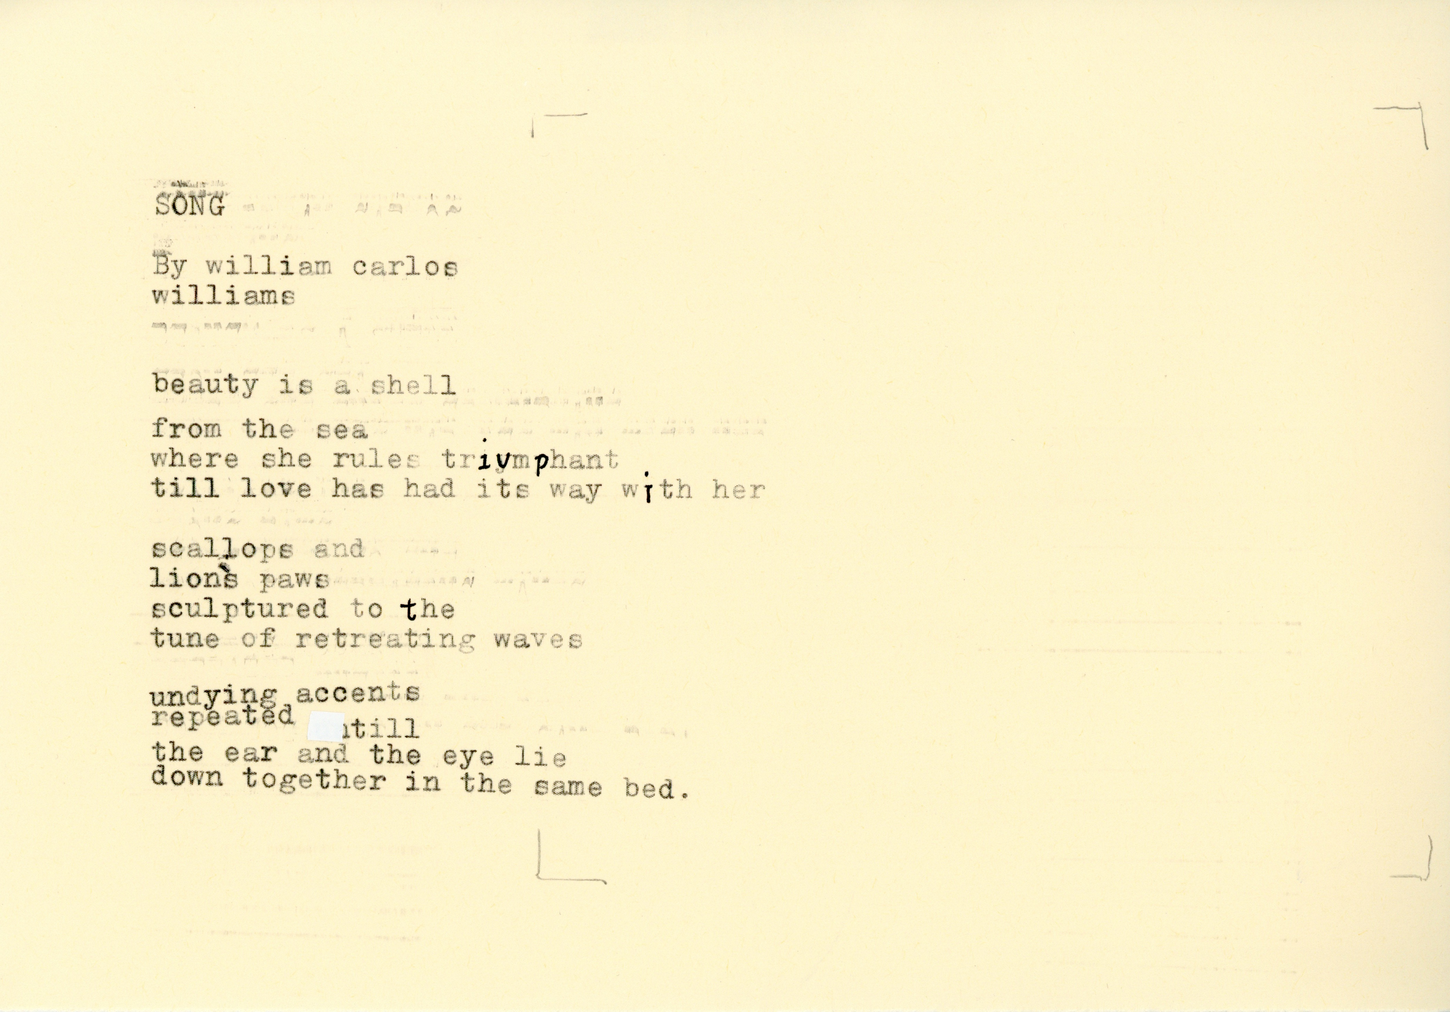 SONG
By william carlos
williams
beauty is a shell
from the sea
where she rules triymphant
till love has had its way with her
scallops and
lion's paws
sculptured to the
tune of retreating waves
undying accents
repeated till
the ear and the eye lie
down together in the same bed.